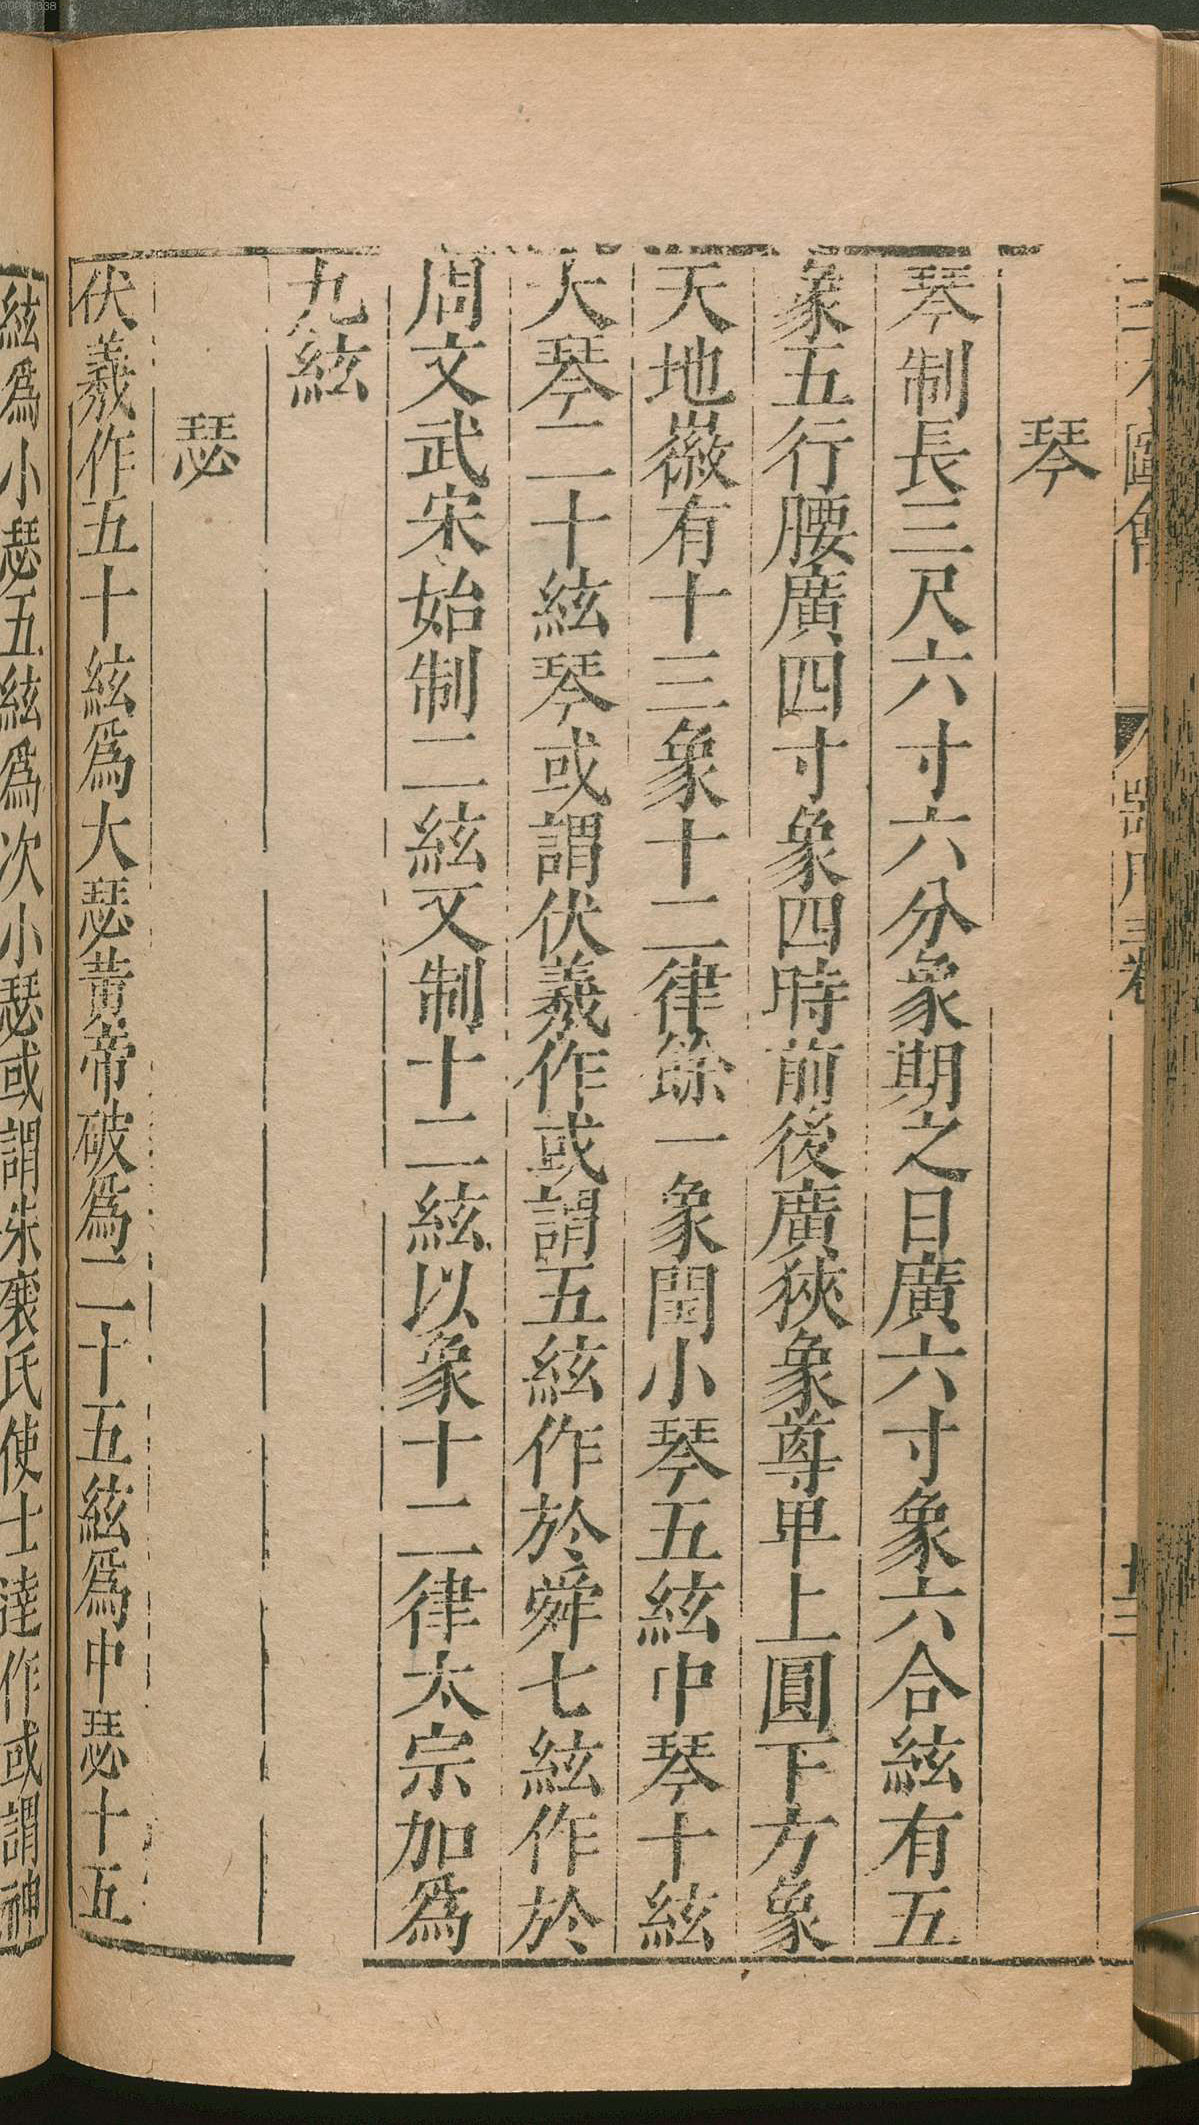 三才圖會 器用三卷 十三
琴
琴制長三尺六寸六分象期之日廣六寸象六合絃有五
象五行腰廣四寸象四時前後廣狹象尊卑上圓下方象
天地徽有十三象十二律餘一象閏小琴五絃中琴十絃
大琴二十絃琴或謂伏羲作或謂五絃作於舜七絃作於
周文武宋始制二絃又制十二絃以象十二律太宗加爲
九絃
瑟
伏羲作五十絃爲大瑟黃帝破爲二十五絃爲中瑟十五
絃爲小瑟五絃爲次小瑟或謂朱襄氏使士逹作或謂神